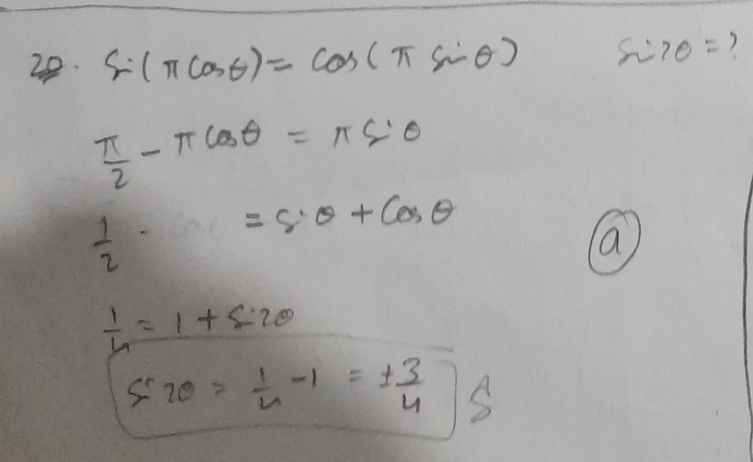 20. Si(π Cosθ) = Cos(π Sinθ) Sin2θ = ?
π/2 - π Cosθ = π Sθ
1/2 = Siθ + Cosθ
(a)
1/4 = 1 + Si2θ
Si2θ = 1/4 - 1 = ±3/4